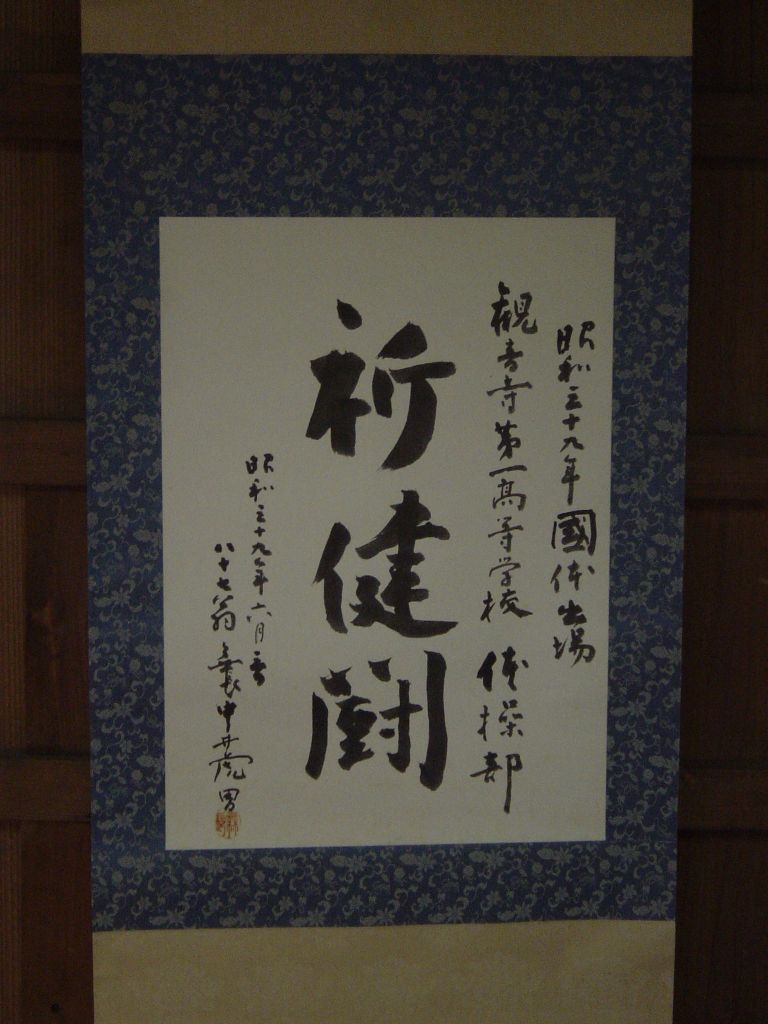 昭和三十九年國体出場
観音寺第一高等学校 体操部
祈健闘
昭和三十九年六月吉
八十七翁